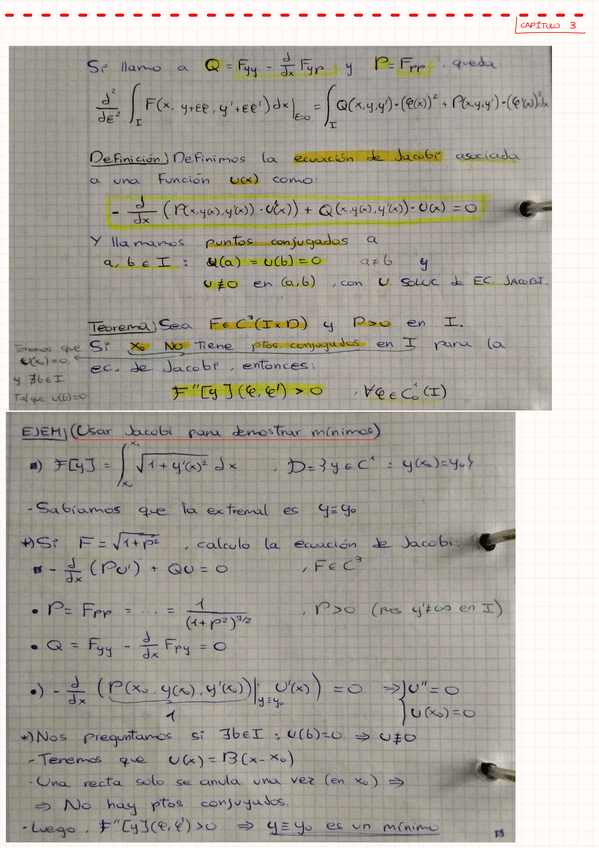 CAPÍTULO 3
Si llamo a Q = F_yy - d/dx F_yp y P = F_pp, queda
d²/dε² ∫_I F(x, y+εφ, y'+εφ')dx |_ε=0 = ∫_I Q(x,y,y')·(φ(x))² + P(x,y,y')·(φ'(x))² dx
Definición) Definimos la ecuación de Jacobi asociada
a una función u(x) como:
- d/dx (P(x,y(x),y'(x))·u'(x)) + Q(x,y(x),y'(x))·u(x) = 0
Y llamamos puntos conjugados a
a, b ∈ I : u(a) = u(b) = 0 a≠b y
u≢0 en (a,b), con u soluc de EC JACOBI.
Teorema) Sea F∈C³(I×D) y P>0 en I.
Si x₀ NO tiene ptos conjugados en I para la
ec. de Jacobi, entonces:
F''[y](φ,φ') > 0 , ∀φ∈C₀¹(I)
Tenemos que
u(x₀)=0
y ∄b∈I
Tal que u(b)=0
EJEM) (Usar Jacobi para demostrar mínimos)
•) F[y] = ∫_x₀^x₁ √(1+y'(x)²) dx , D={y∈C¹ : y(x₀)=y₀}
- Sabíamos que la extremal es y≡y₀
*) Si F = √(1+p²) , calculo la ecuación de Jacobi:
• - d/dx (Pu') + Qu = 0 , F∈C³
• P = F_pp = ... = 1/(1+p²)^(3/2) , P>0 (pues y'≠∞ en I)
• Q = F_yy - d/dx F_py = 0
•) - d/dx (P(x₀, y(x₀), y'(x₀))|_y≡y₀ u'(x)) = 0 ⇒ { u''=0
1 u(x₀)=0
*) Nos preguntamos si ∃b∈I : u(b)=0 ⇒ u≢0
- Tenemos que u(x) = B(x-x₀)
- Una recta solo se anula una vez (en x₀) ⇒
⇒ No hay ptos conjugados.
- Luego, F''[y](φ,φ') > 0 ⇒ y≡y₀ es un mínimo